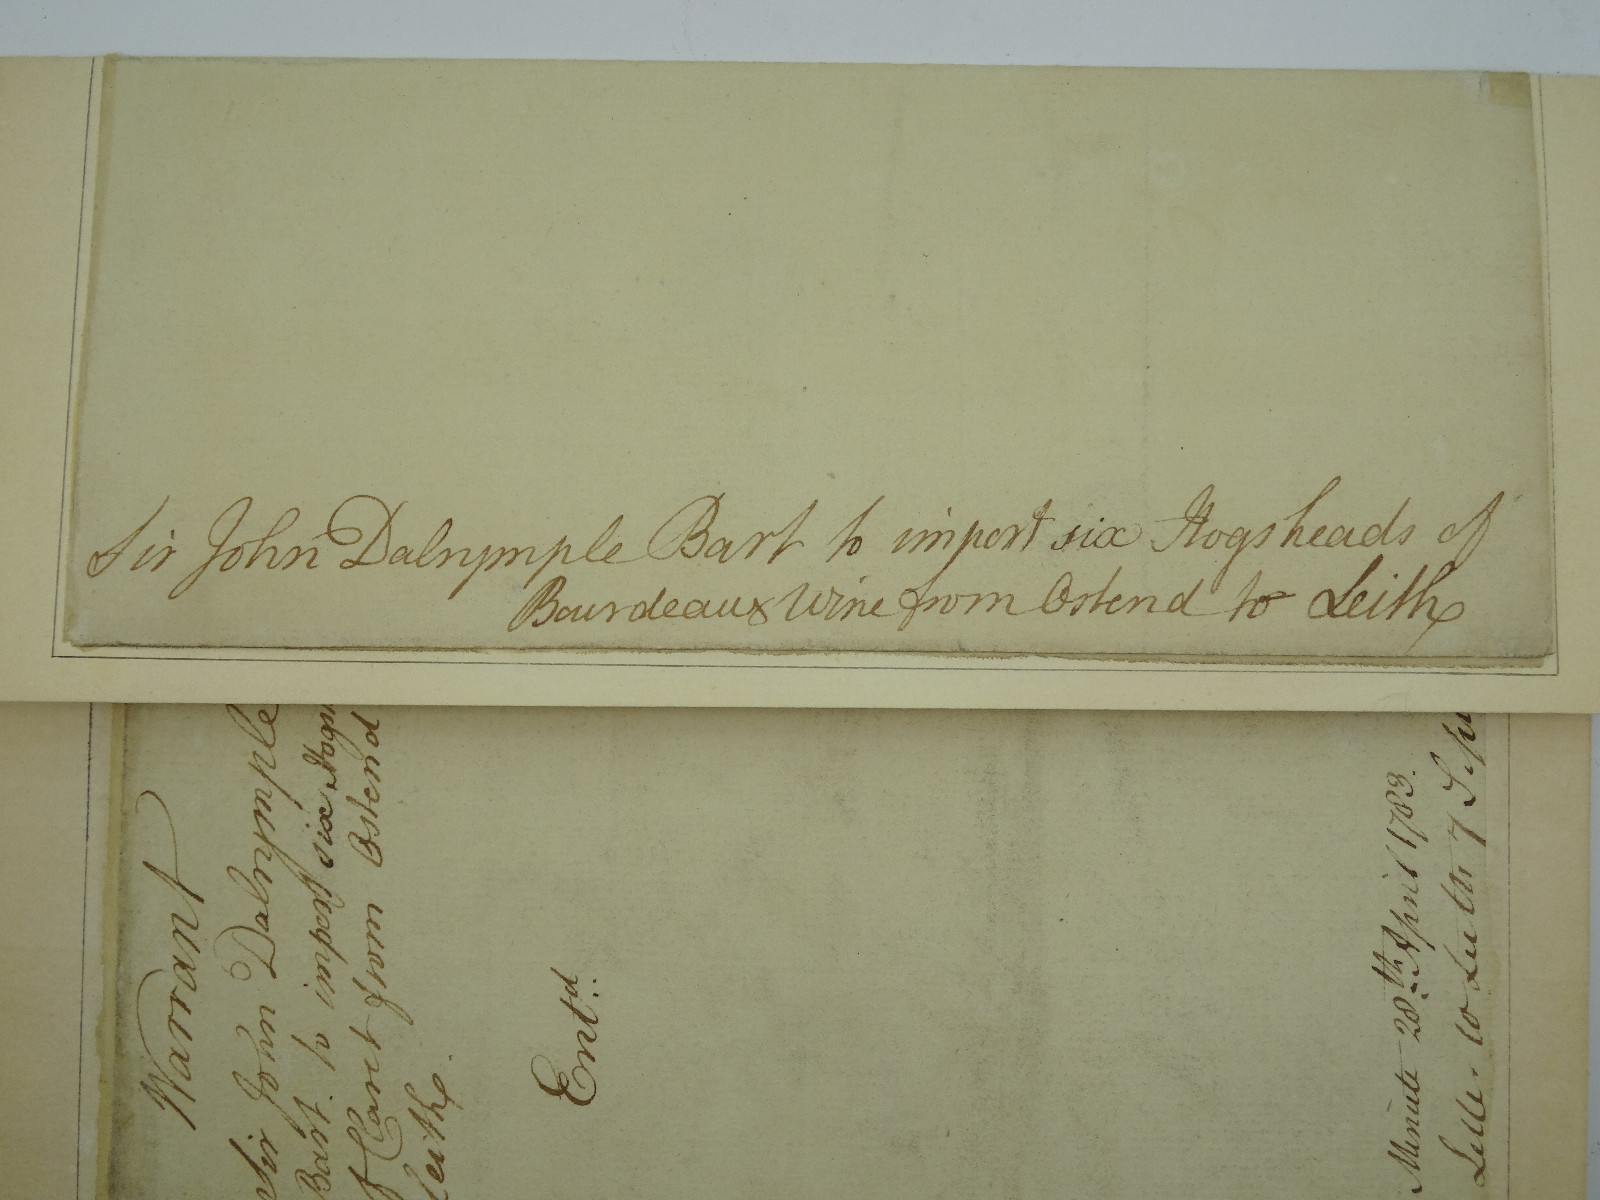 Sir John Dalrymple Bart to import six Hogsheads of
Bourdeaux Wine from Ostend to Leith
Warrant
Sir John Dalrymple
Bart: of import six Hogs
of Claret from Ostend
Leith.
Entd:
Minute 28th: April 1783.
to Leith 7